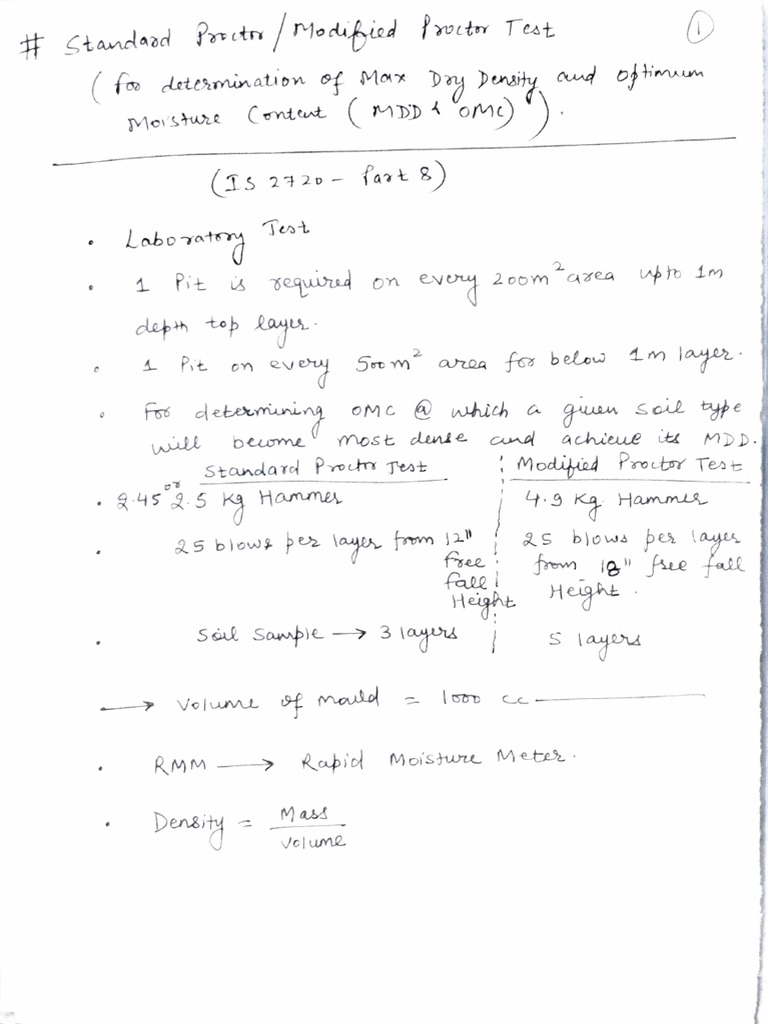 ①
# Standard Proctor / Modified Proctor Test
(for determination of Max Dry Density and optimum
Moisture Content (MDD & OMC)).
(IS 2720 - Part 8)
• Laboratory Test
• 1 Pit is required on every 200m² area upto 1m
depth top layer.
• 1 Pit on every 500m² area for below 1m layer.
• For determining OMC @ which a given soil type
will become most dense and achieve its MDD.
Standard Proctor Test Modified Proctor Test
• 2.45 or 2.5 kg Hammer 4.9 kg. Hammer
• 25 blows per layer from 12" 25 blows per layer
free from 18" free fall
fall
Height Height.
• Soil Sample → 3 layers 5 layers
→ Volume of mould = 1000 cc
• RMM → Rapid Moisture Meter.
• Density = Mass
Volume